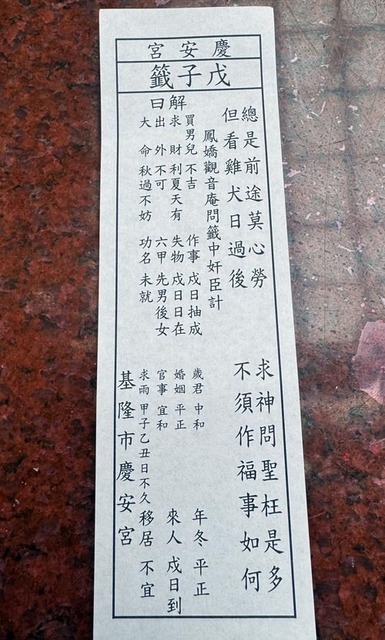 慶安宮
戊子籤
總是前途莫心勞 求神問聖枉是多
但看雞犬日過後 不須作福事如何
鳳嬌觀音庵問籤中奸臣計
解曰
買男兒 不吉 作事 戌日抽成 歲君 中和 年冬 平正
求財 利夏天有 失物 戌日日在 婚姻 平正 來人 戌日到
出外 不可 六甲 先男後女 官事 宜和
大命 秋過不妨 功名 未就 求雨 甲子乙丑日不久 移居 不宜
基隆市慶安宮